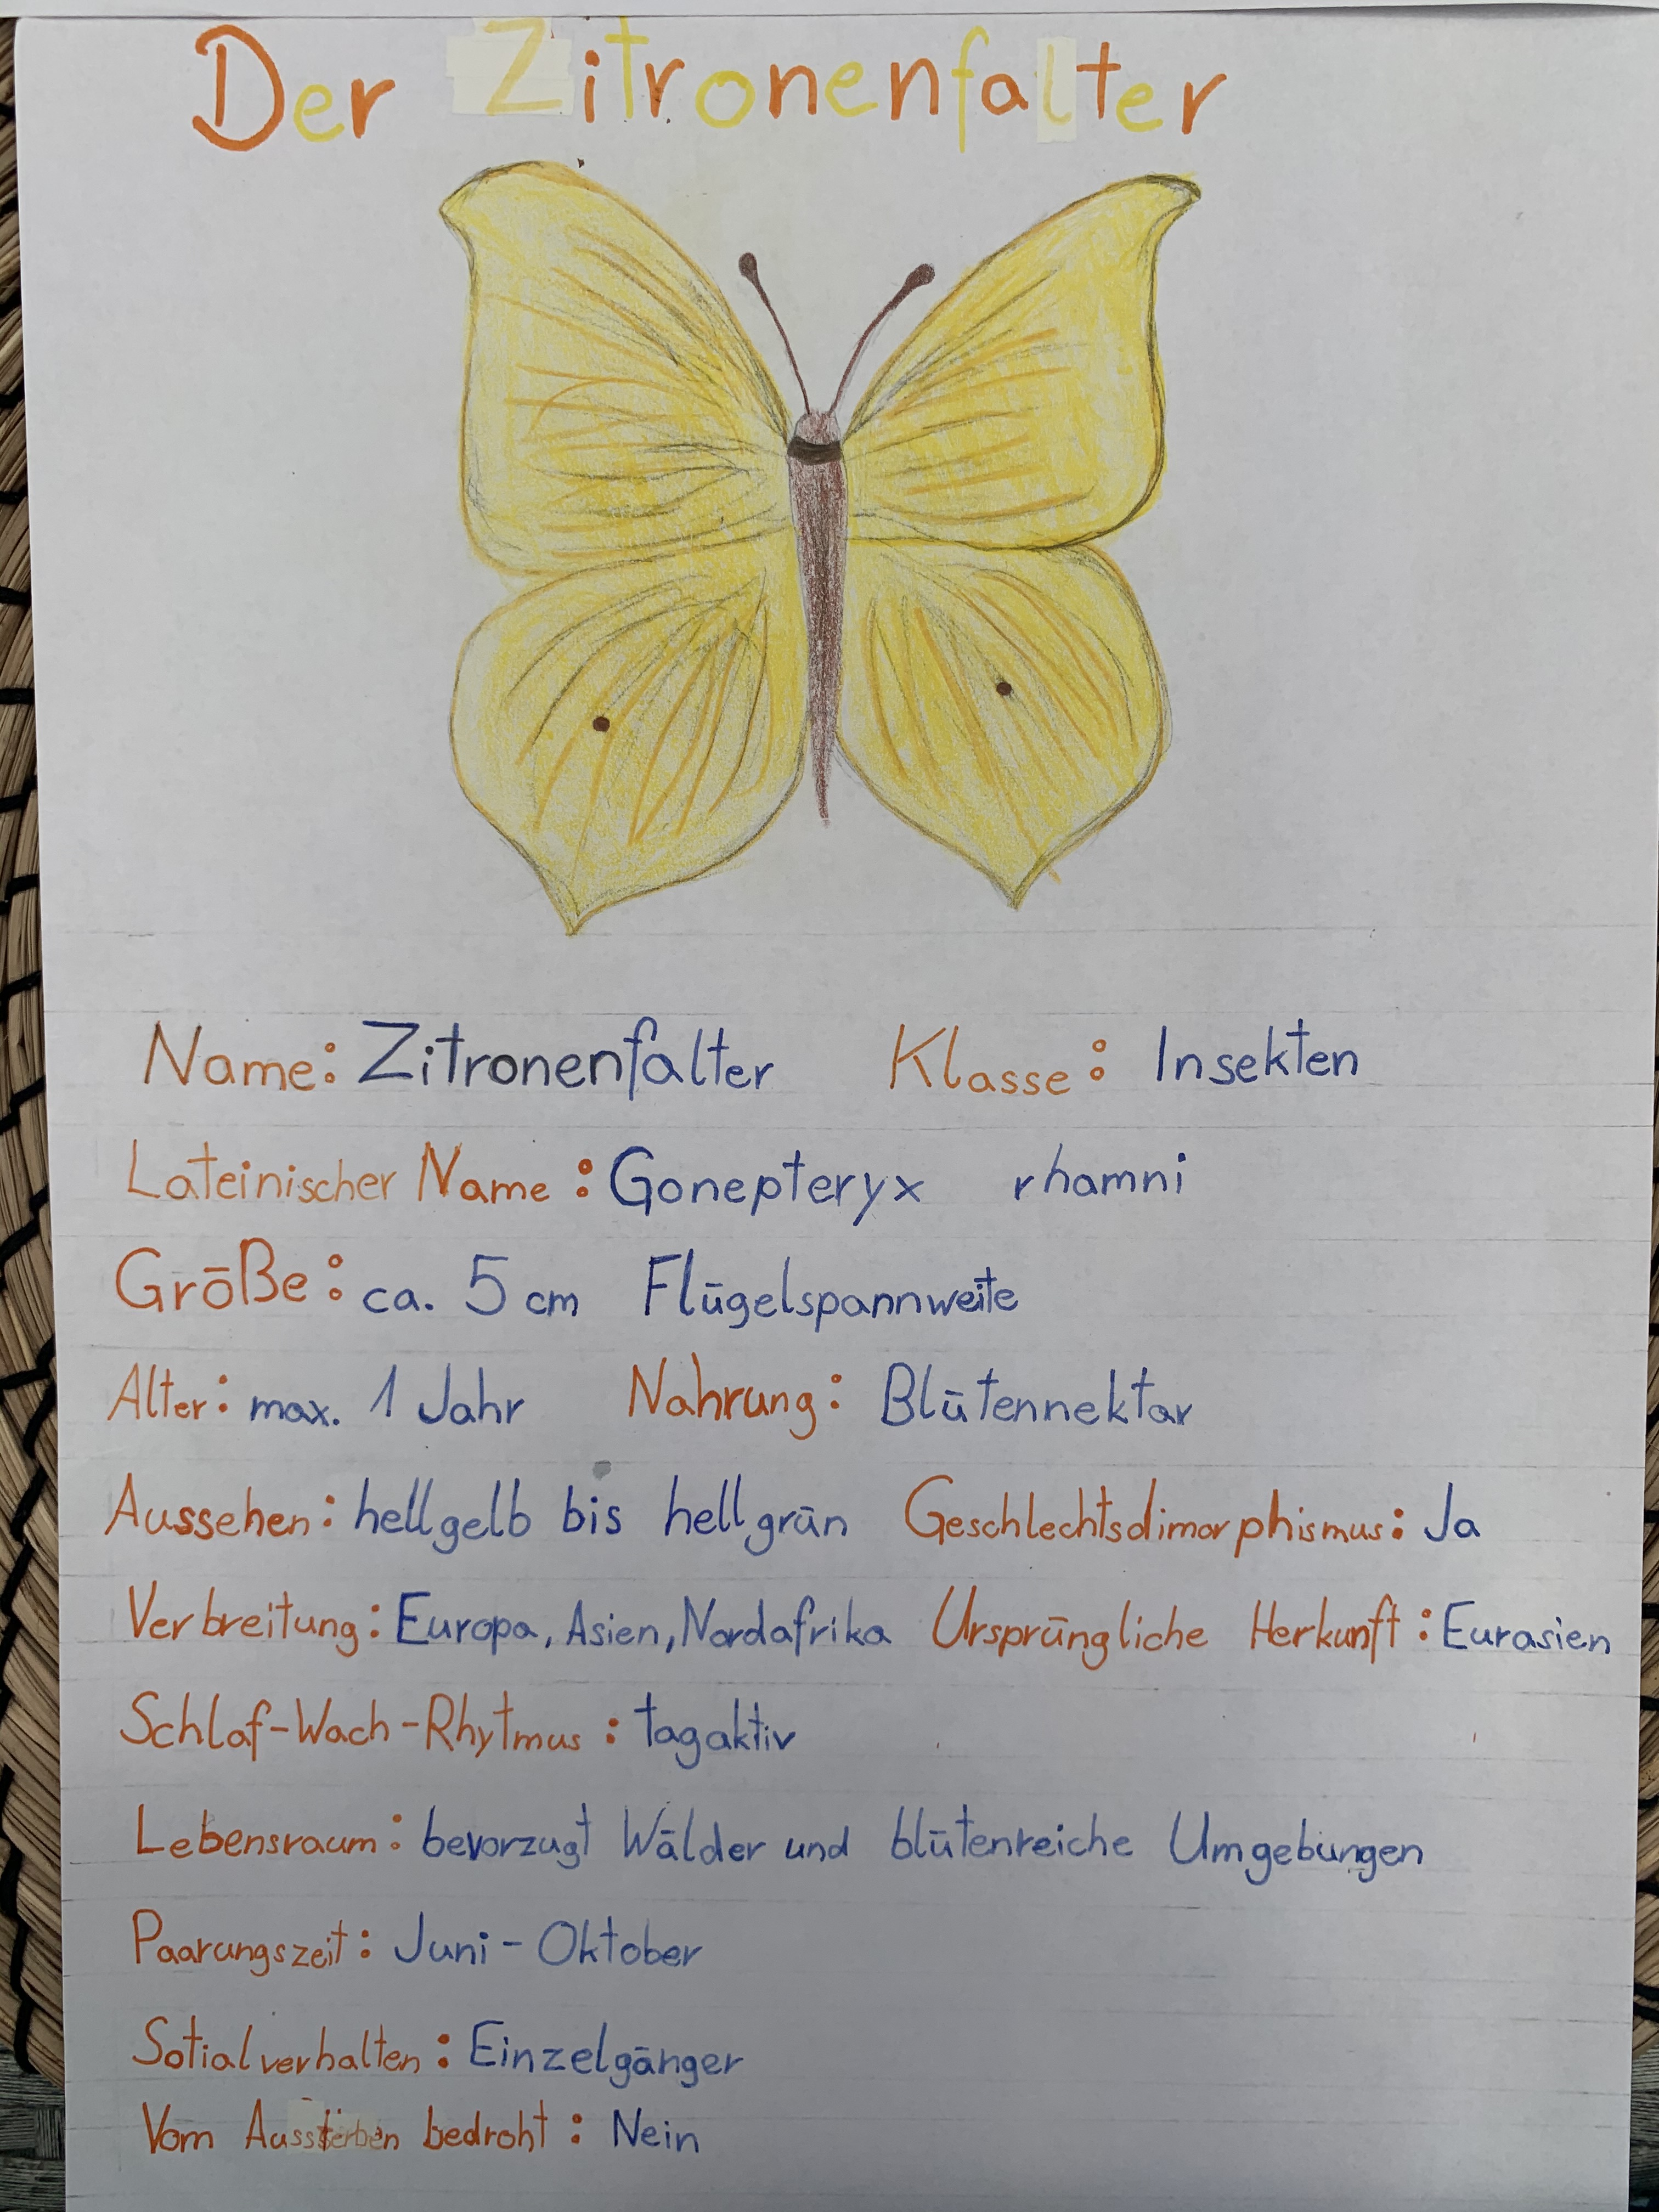 Der Zitronenfalter
Name: Zitronenfalter Klasse: Insekten
Lateinischer Name: Gonepteryx rhamni
Größe: ca. 5 cm Flügelspannweite
Alter: max. 1 Jahr Nahrung: Blütennektar
Aussehen: hellgelb bis hellgrün Geschlechtsdimorphismus: Ja
Verbreitung: Europa, Asien, Nordafrika Ursprüngliche Herkunft: Eurasien
Schlaf-Wach-Rhytmus: tagaktiv
Lebensraum: bevorzugt Wälder und blütenreiche Umgebungen
Paarungszeit: Juni - Oktober
Sotialverhalten: Einzelgänger
Vom Aussterben bedroht: Nein